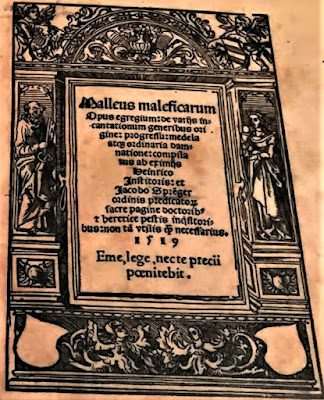 Malleus maleficarum
Opus egregium: de varijs in-
cantationum generibus ori
gine: progressu: medela
atq̃ ordinaria dam-
natione: compila
tus ab eximijs
Heinrico
Institoris: et
Jacobo Spréger
ordinis predicatoꝝ
sacre pagine doctoribꝰ
⁊ heretice pestis inqsitori-
bus: non tã vtilis q̃ necessarius.
1519
Eme, lege, nec te precii
pœnitebit.